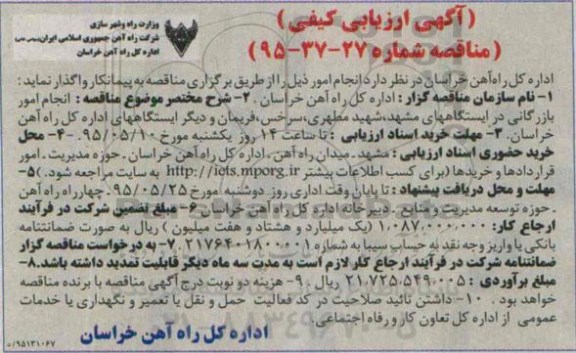 (آگهی ارزیابی کیفی)
(مناقصه شماره ۲۷-۳۷-۹۵)
وزارت راه وشهر سازی
شرکت راه آهن جمهوری اسلامی ایران(سهامی خاص)
اداره کل راه آهن خراسان
اداره کل راه‌آهن خراسان در نظر دارد انجام امور ذیل را از طریق برگزاری مناقصه به پیمانکار واگذار نماید :
۱- نام سازمان مناقصه گزار : اداره کل راه آهن خراسان . ۲- شرح مختصر موضوع مناقصه : انجام امور
بازرگانی در ایستگاههای مشهد،شهید مطهری،سرخس،فریمان و دیگر ایستگاههای اداره کل راه آهن
خراسان. ۳- مهلت خرید اسناد ارزیابی : تا ساعت ۱۴ روز یکشنبه مورخ ۹۵/۰۵/۱۰. ۴- محل
خرید حضوری اسناد ارزیابی : مشهد ـ میدان راه آهن ـ اداره کل راه آهن خراسان ـ حوزه مدیریت ـ امور
قراردادها و خریدها (برای کسب اطلاعات بیشتر http://iets.mporg.ir به سایت مراجعه شود.) ۵-
مهلت و محل دریافت پیشنهاد : تا پایان وقت اداری روز دوشنبه مورخ ۹۵/۰۵/۲۵ ـ چهارراه راه آهن
ـ حوزه توسعه مدیریت و منابع ـ دبیرخانه اداره کل راه آهن خراسان ۶- مبلغ تضمین شرکت در فرآیند
ارجاع کار: ۱،۰۸۷،۰۰۰،۰۰۰ (یک میلیارد و هشتاد و هفت میلیون ) ریال به صورت ضمانتنامه
بانکی یا واریز وجه نقد به حساب سیبا به شماره ۲۱۷۶۴۰۱۸۰۰۰۰۱ .۷- به درخواست مناقصه گزار
ضمانتنامه شرکت در فرآیند ارجاع کار لازم است به مدت سه ماه دیگر قابلیت تمدید داشته باشد.۸-
مبلغ برآوردی : ۲۱،۷۲۵،۵۴۹،۰۰۵ ریال . ۹- هزینه دو نوبت درج آگهی مناقصه با برنده مناقصه
خواهد بود . ۱۰- داشتن تائید صلاحیت در کد فعالیت حمل و نقل یا تعمیر و نگهداری یا خدمات
عمومی از اداره کل تعاون کار و رفاه اجتماعی.
اداره کل راه آهن خراسان
۹۵۱۳۱۰۶۷/ه